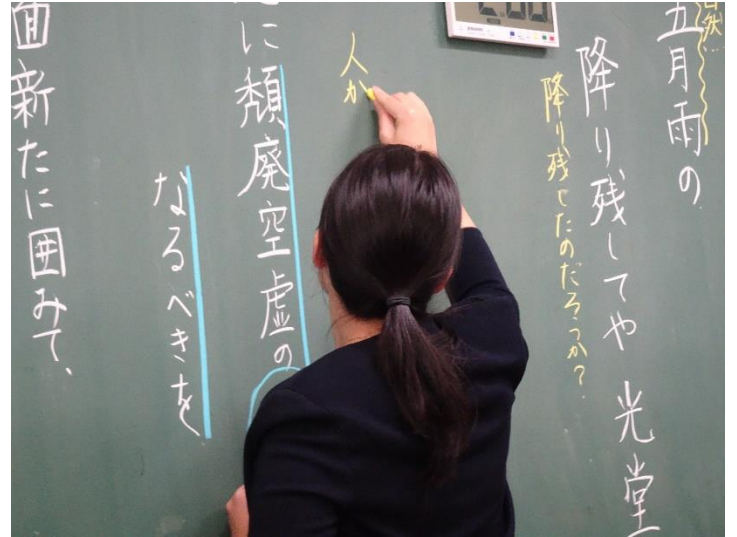 五月雨の
降り残してや 光堂
降り残せたのだろうか?
人か
に頽廃空虚の
なるべきを
面新たに囲みて、